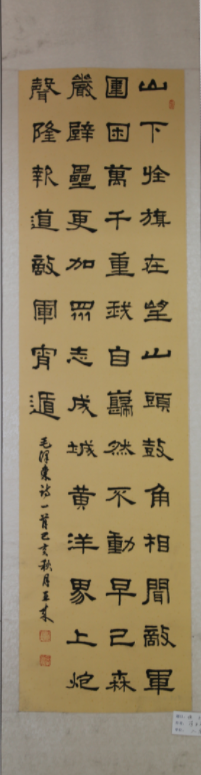 山下旌旗在望山頭鼓角相聞敵軍
圍困萬千重我自巋然不動早已森
嚴壁壘更加眾志成城黃洋界上炮
聲隆報道敵軍宵遁
毛澤東詩一首己亥秋月王